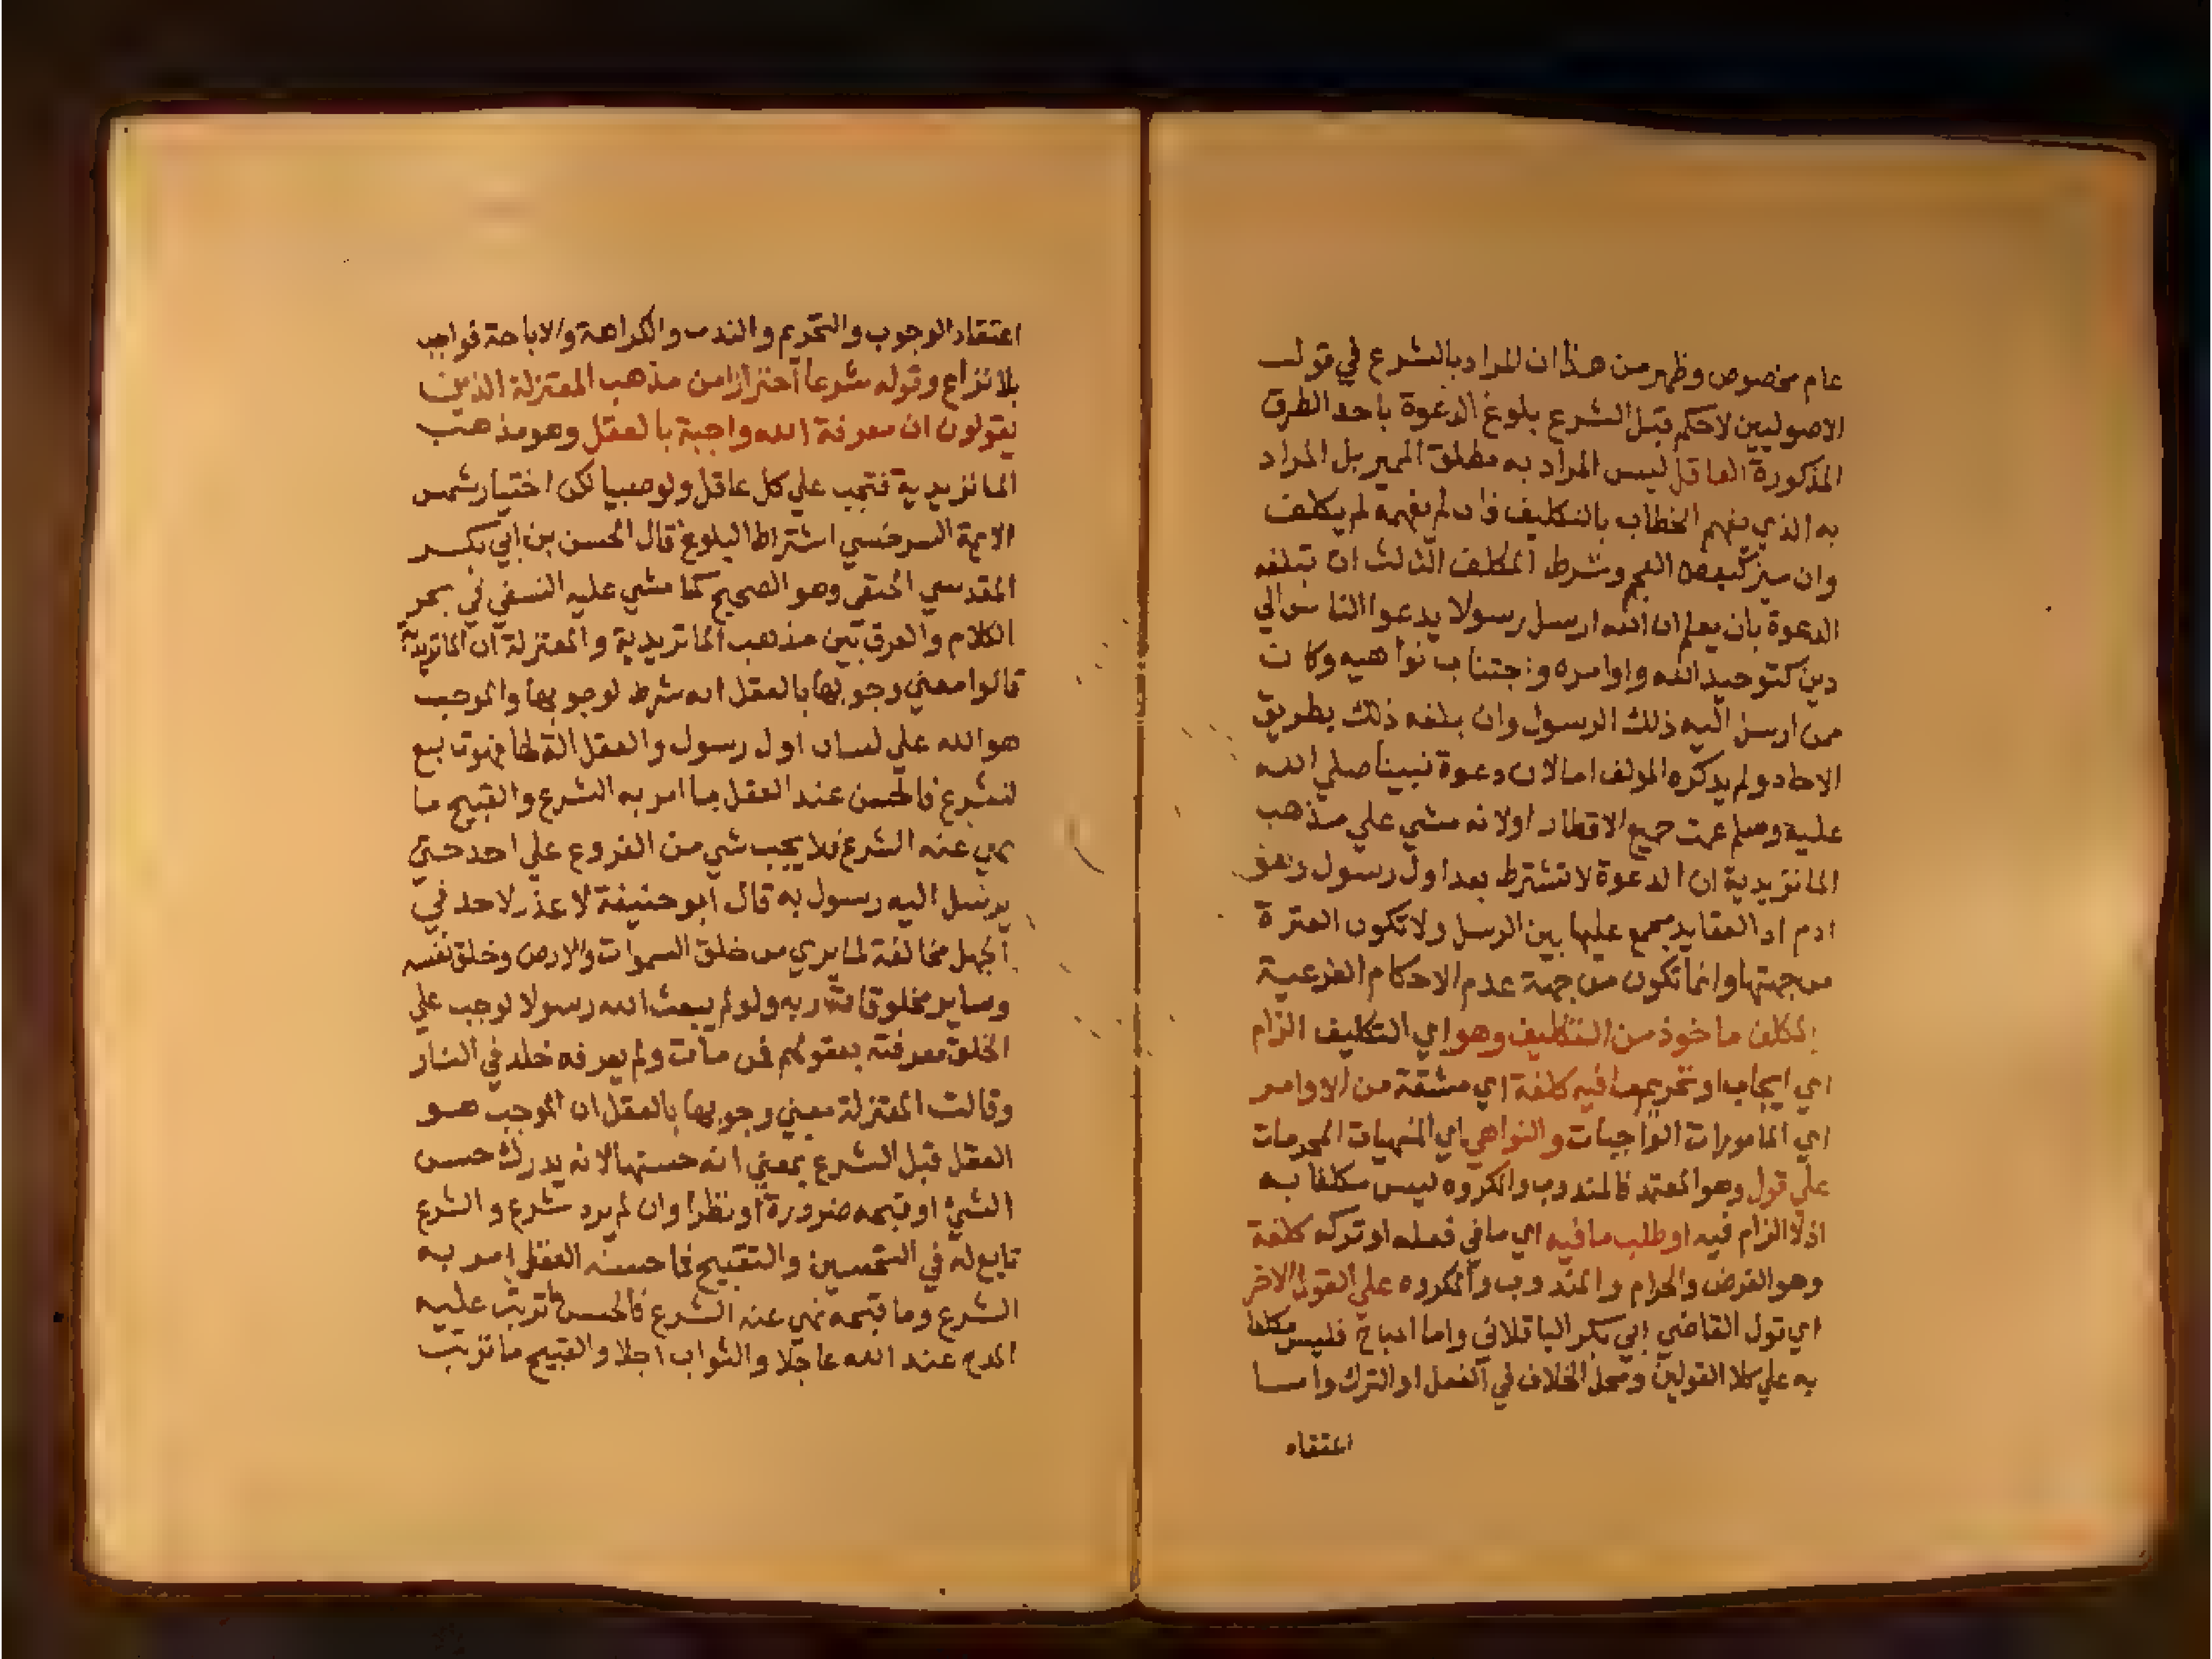 عام مخصوص وظهر من هذا ان المراد بالشرع في قولـ
الاصوليين لاحكم قبل الشرع بلوغ الدعوة باحد الطرق
المذكورة العاقل ليس المراد به مطلق المميز بل المراد
به الذي يفهم الخطاب بالتكليف فان لم يفهمه لم يكلف
وان ميز كبعض العجم وشرط المكلف الثالث ان تبلغه
الدعوة بان يعلم ان الله ارسل رسولا يدعوا الناس الي
دين كتوحيد الله واوامره واجتناب نواهيه وكان
ممن ارسل اليه ذلك الرسول وان بلغه ذلك بطريق
الاحاد ولم يذكره المولف اما لان دعوة نبينا صلي الله
عليه وسلم عمت جميع الاقطار اولانه مشي علي مذهب
الماتريدية ان الدعوة لا تشترط بعد اول رسول وهو
ادم اذ العقايد مجمع عليها بين الرسل ولا تكون الفترة
من جهتها وانما تكون من جهة عدم الاحكام الفرعية
المكلف ماخوذ من التكليف وهو اي التكليف الزام
اي ايجاب او تحريم ما فيه كلفة اي مشقة من الاوامر
اي المامورات الواجبات والنواهي اي المنهيات المحرمات
علي قول وهو المعتمد فالمندوب والمكروه ليس مكلفا به
اذ لا الزام فيه او طلب ما فيه اي ما في فعله او تركه كلفة
وهو الفرض والحرام والمندوب والمكروه علي القول الاخر
اي قول القاضي ابي بكر الباقلاني واما المباح فليس مكلفا
به علي كلا القولين ومحل الخلاف في الفعل او الترك واما
اعتقاد
اعتقاد الوجوب والتحريم والندب والكراهة والاباحة فواجب
بلا نزاع وقوله شرعا احترازا من مذهب المعتزلة الذين
يقولون ان معرفة الله واجبة بالعقل وهو مذهب
الماتزيدية فتجب علي كل عاقل ولو صبيا لكن اختيار شمس
الايمة السرخسي اشتراط البلوغ قال الحسن بن ابي بكر
المقدسي الحنفي وهو الصحيح كما مشي عليه النسفي في بحر
الكلام والفرق بين مذهب الماتريدية والمعتزلة ان الماتريدية
قالوا معني وجوبها بالعقل انه شرط لوجوبها والموجب
هو الله علي لسان اول رسول والعقل الة لها فهو تابع
للشرع فالحسن عند العقل ما امر به الشرع والقبيح ما
نهي عنه الشرع فلا يجب شي من الفروع علي احد حتي
يرسل اليه رسول به قال ابو حنيفة لا عذر لاحد في
الجهل مخالفة لما يري من خلق السموات والارض وخلق نفسه
وساير مخلوقات ربه ولو لم يبعث الله رسولا لوجب علي
الخلق معرفته بعقولهم فمن مات ولم يعرفه خلد في النار
وقالت المعتزلة معني وجوبها بالعقل ان الموجب هو
العقل قبل الشرع بمعني انه حسنها لانه يدرك حسن
الشي او قبحه ضرورة او نظرا وان لم يرد شرع والشرع
تابع له في التحسين والتقبيح فما حسنه العقل امر به
الشرع وما قبحه نهي عنه الشرع فالحسن ما ترتب عليه
المدح عند الله عاجلا والثواب اجلا والقبيح ما ترتب